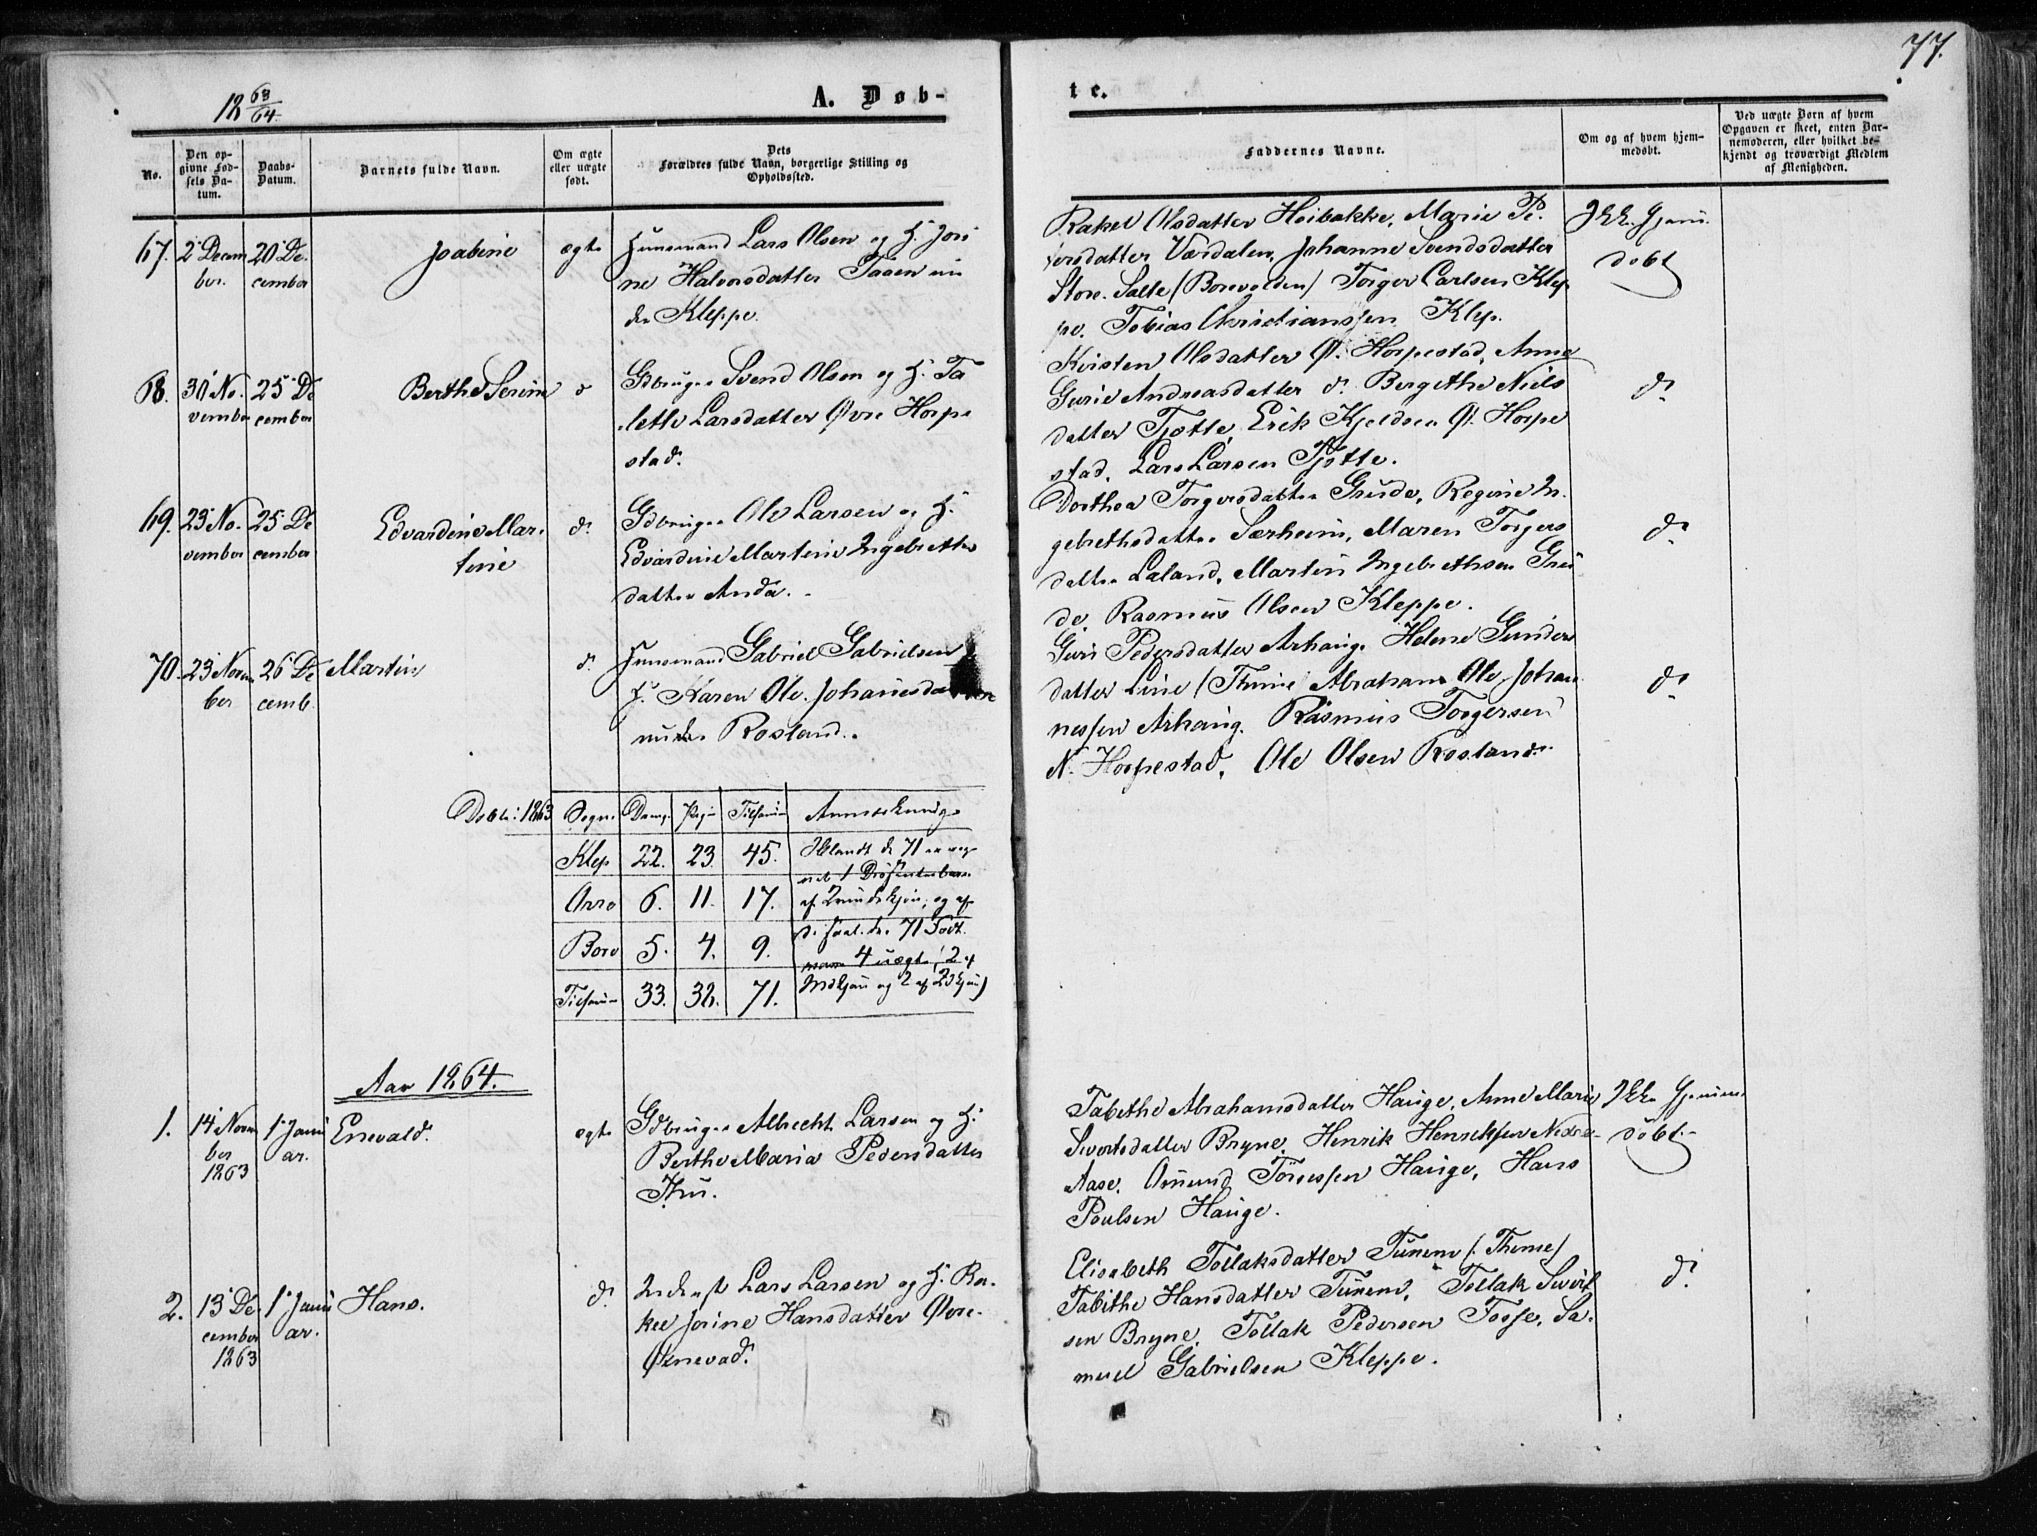 77.
18 63/64.
A. Døb-
te.
No.
Den op-
givne Fød-
sels Da-
tum.
Daabs-
Datum.
Barnets fulde Navn.
Om ægte
eller uægte
født.
Dets
Forældres fulde Navn, borgerlige Stilling og
Opholdssted.
Faddernes Navne.
Om og af hvem hjem-
medøbt.
Ved uægte Børn af hvem
Opgaven er skeet, enten Bar-
nemoderen, eller hvilket be-
kjendt og troværdigt Medlem
af Menigheden.
67.
2 Decem
ber.
20 De-
cember
Jsabine
ægte
Huusmand Lars Olsen og H. Jori
ne Halvorsdatter Taaen un
der Kleppe.
Rakel Olsdatter Høibakke, Marie Pe-
tersdatter Værdalen, Johanne Svendsdatter
Store-Salte (Borevolden) Torger Carlsen Klep
pe. Tobias Christianssen Klep.
Jkke Hjem
døbt
68.
30 No-
vember
25 De
cember
Berthe Serine
d
Gdbruger Svend Olsen og H. Ta
lette Larsdatter Øvre Horpe
stad.
Kirsten Olsdatter Ø. Horpestad, Anne
Gurie Andreasdatter d. Bergithe Niels
datter Tjøtte, Erik Kjeldsen Ø. Horpe
stad, Lars Larsen Tjøtte.
d.
69.
23 No-
vember
25 De
cember
Edvardine Mar-
tine
d.
Gdbruger Ole Larsen og H.
Edvardine Martine Ingebretts
datter Anda.
Dorthea Torgersdatter Grude, Regine In-
gebrethsdatter Særheim, Maren Torgers
datter Laland, Martin Ingebrethsen Gru
de, Rasmus Olsen Kleppe.
d.
70.
23 Novem
ber
26 De
cemb.
Martin
d.
Huusmand Gabriel Gabrielsen
H. Karen Ole. Johannesdatter
under Rosland.
Guri Pedersdatter Arhaug, Helene Gunders
datter Line (Thime) Abraham Ole Johan
nessen Arhaug. Rasmus Torgersen
N. Horpestad, Ole Olsen Rosland.
d.
Døbte: 1863
Sogn. Dreng. Pige Tilsam. Anmærkninger
Klep 22. 23. 45.
Orre 6. 11. 17.
Bore 5. 4. 9.
Tilsam 33. 38. 71.
Iblandt de 71 er reg
net 1 Dødfødtbarn
af Qvindekjøn, og af
de saal. de 71 Født
4 uægte (2 af
Mdkjøn og 2 af Qdkjøn)
Aar 1864.
1.
14 Novem
ber
1863
1 Janu
ar.
Enevald.
ægte
Gdbruger Albrecht Larsen og H.
Berthe Maria Pedersdatter
Thu.
Tabithe Abrahamsdatter Hauge, Anne Marie
Sivertsdatter Bryne, Henrik Henriksen Nedre-
Aase. Omund Tønnessen Hauge, Hans
Poulsen Hauge.
Jkke Hjemme
døbt.
2.
13 De-
cember
1863
1 Janu
ar.
Hans.
d.
Lars Larsen og H. Ra-
kel Jorine Hansdatter Øvre-
Øxnevad.
Elisabeth Tollaksdatter Tunem (Thime)
Tabithe Hansdatter Tunem, Tollak Sivert
sen Bryne, Tollak Pedersen Fosse, Sa-
muel Gabrielsen Kleppe.
d.